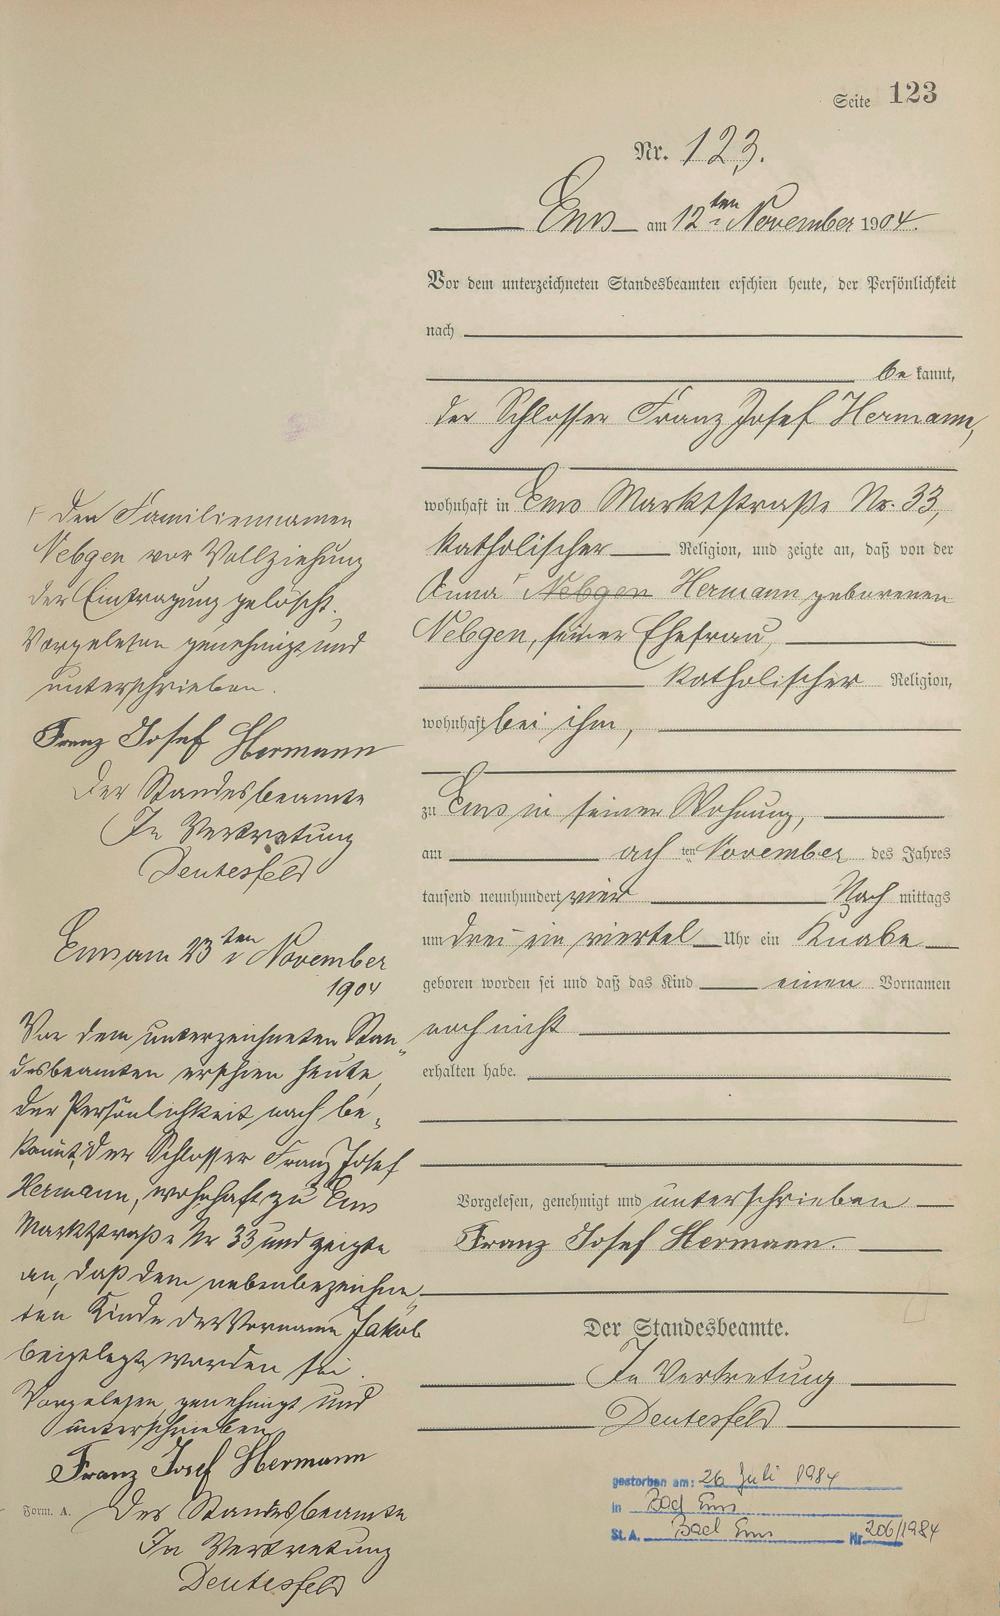 Seite 123
Nr. 123.
Ems am 12ten November 1904.
Vor dem unterzeichneten Standesbeamten erschien heute, der Persönlichkeit
nach
be kannt,
der Schlosser Franz Josef Hermann,
wohnhaft in Ems Marktstraße Nr. 33,
katholischer Religion, und zeigte an, daß von der
Anna Nebgen Hermann geborenen
Nebgen, seiner Ehefrau,
katholischer Religion,
wohnhaft bei ihm,
zu Ems in seiner Wohnung,
am ach ten November des Jahres
tausend neunhundert vier Nach mittags
um drei ein viertel Uhr ein Knabe
geboren worden sei und daß das Kind einen Vornamen
noch nicht
erhalten habe.
Vorgelesen, genehmigt und unterschrieben
Franz Josef Hermann.
Der Standesbeamte.
In Vertretung
Deutesfeld
gestorben am: 26 Juli 1984
in Bad Ems
St. A. Bad Ems Nr. 206/1984
Den Familiennamen
Nebgen vor Vollziehung
der Eintragung gelöscht.
Vorgelesen genehmigt und
unterschrieben.
Franz Josef Hermann
Der Standesbeamte
In Vertretung
Deutesfeld
Ems am 23ten November
1904
Vor dem unterzeichneten Stan-
desbeamten erschien heute,
der Persönlichkeit nach be-
kannt, der Schlosser Franz Josef
Hermann, wohnhaft zu Ems
Marktstraße Nr 33 und zeigte
an, daß dem nebenbezeichne-
ten Kinde der Vorname Jakob
beigelegt worden sei.
Vorgelesen, genehmigt und
unterschrieben
Franz Josef Hermann
Form. A. Der Standesbeamte
In Vertretung
Deutesfeld